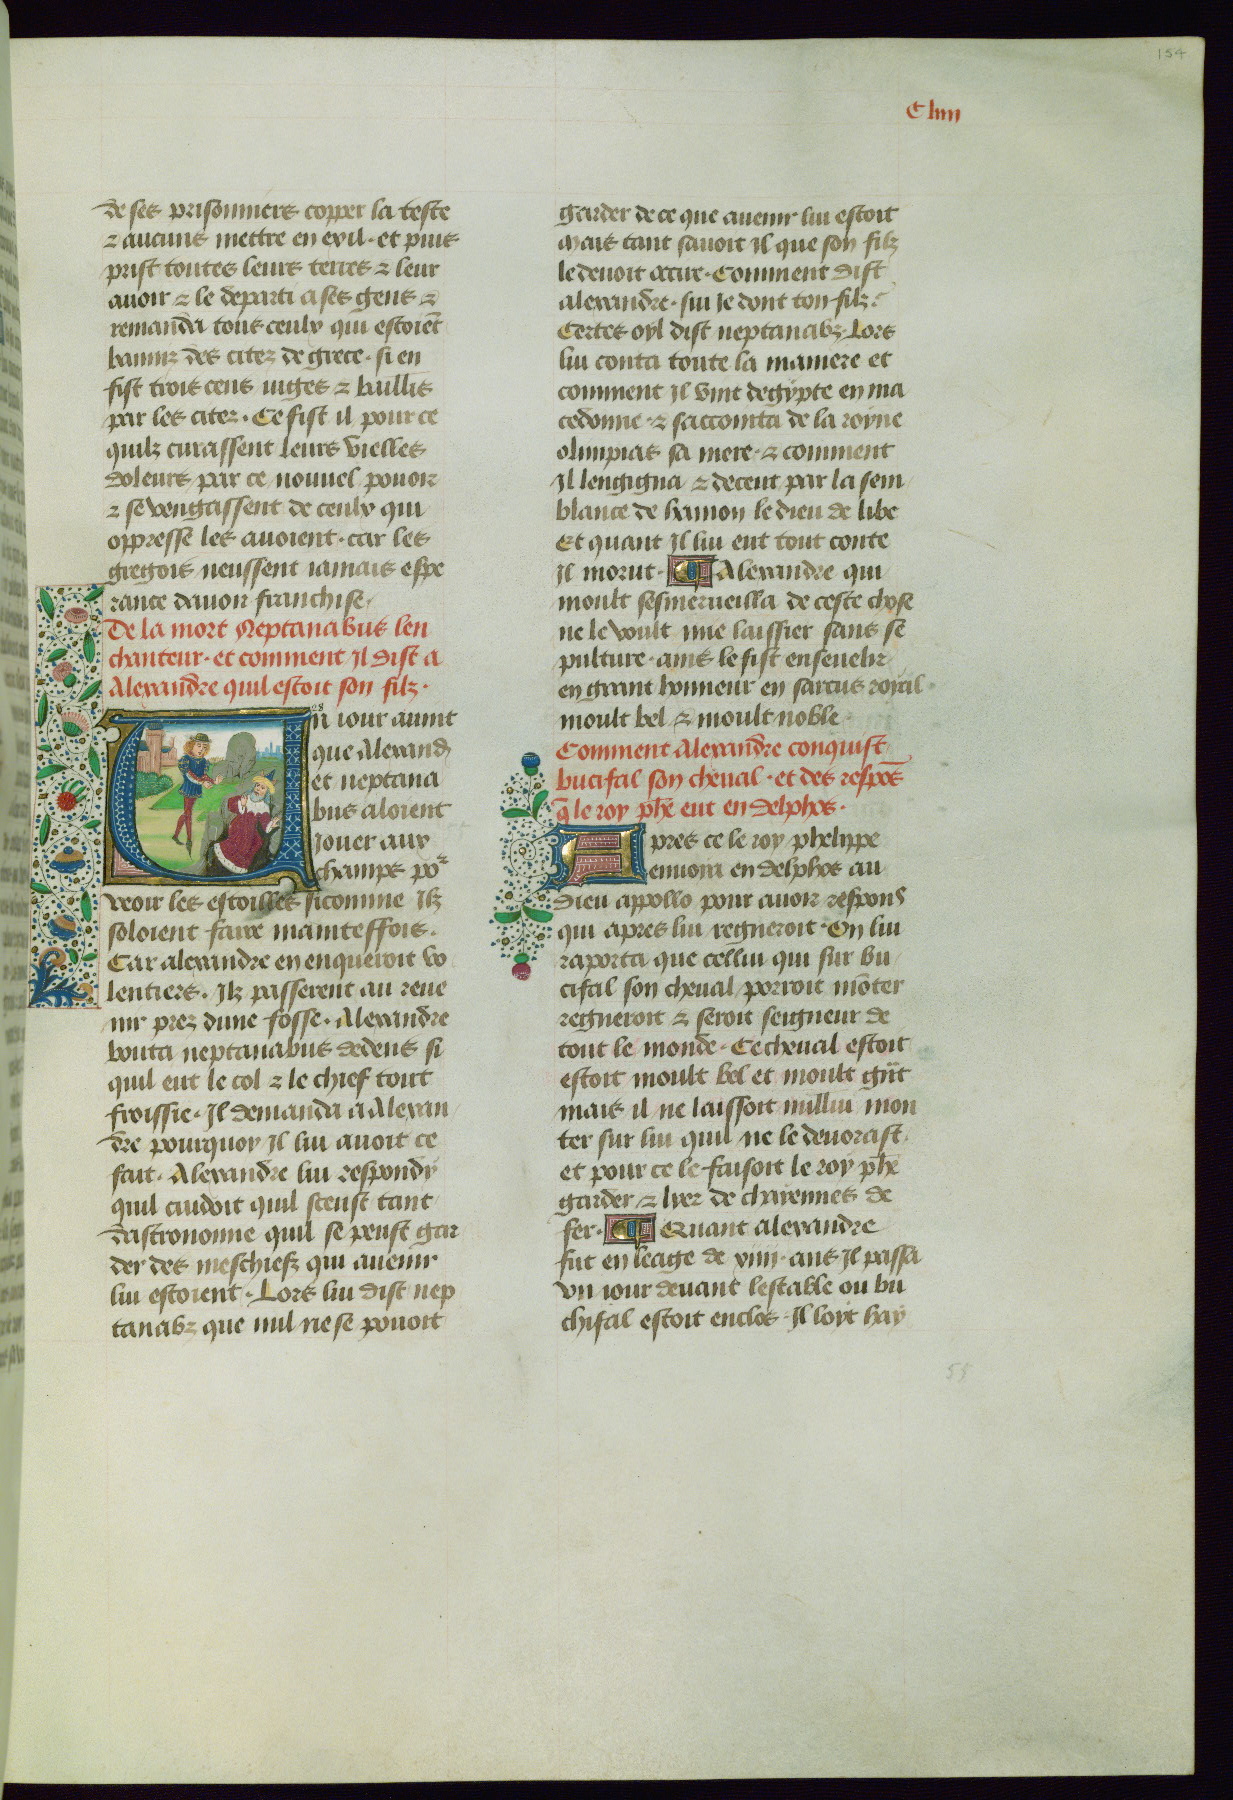 154
C liiii
de ses prisonniers copper la teste
⁊ aucuns mettre en exil · et puis
prist toutes leurs terres ⁊ leur
auoir ⁊ le departi a ses gens ⁊
remanda tous ceulx qui estoiēt
banniz des citez de grece · si en
fist trois cens iuges ⁊ baillis
par les citez · Ce fist il pour ce
quilz curassent leurs vielles
doleurs par ce nouuel pouoir
⁊ se vengassent de ceulx qui
oppresse les auoient · car les
gregois neussent iamais espe
rance dauoir franchise ·
De la mort Neptanabus len
chanteur · et comment Il dist a
Alexandre quil estoit son filz ·
Un iour auint
que Alexand̄
et neptana
bus aloient
Jouer aux
champs po᷑
veoir les estoilles sicomme Ilz
soloient faire mainteffois .
Car alexandre en enqueroit vo
lentiers . Ilz passerent au reue
nir prez dune fosse · Alexandre
bouta neptanabus dedens si
quil eut le col ⁊ le chief tout
froissie · Il demanda a Alexan
dre pourquoy Il lui auoit ce
fait · Alexandre lui respondy
quil cuidoit quil sceust tant
dastronomie quil se peust gar
der des meschiefz qui auenir
lui estoient · Lors lui dist nep
tanabz que nul ne se pouoit
garder de ce que auenir lui estoit
Mais tant sauoit Il que son filz
le deuoit occire · Comment dist
alexandre · sui Je dont ton filz ?
Certes oyl dist neptanabz · Lors
lui conta toute la maniere et
comment Il vint degypte en ma
cedonne · ⁊ saccointa de la royne
olimpias sa mere · ⁊ comment
Il lengigna ⁊ deceut par la sem
blance de hamon le dieu de libe
Et quant Il lui eut tout conte
Il morut · Alexandre qui
moult sesmerueilla de ceste chose
ne le voult mie laissier sans se
pulture · ains le fist enseuelir
en grant honneur en sarcus royal ·
moult bel ⁊ moult noble ·
Comment Alexandre conquist
bucifal son cheual · et des respōs
q̄ le roy phē eut en delphos ·
Apres ce le roy phelippe
enuoia en delphos au
dieu appollo pour auoir respons
qui apres lui regneroit · On lui
raporta que cellui qui sur bu
cifal son cheual porroit mōter
regneroit ⁊ seroit seigneur de
tout le monde · Ce cheual estoit
estoit moult bel et moult grāt
mais il ne laissoit nullui mon
ter sur lui quil ne le deuorast .
et pour ce le faisoit le roy phē
garder ⁊ lyer de chayennes de
fer · Quant alexandre
fut en leage de xviii · ans Il passa
vn iour deuant lestable ou bu
chifal estoit enclos · Il loyt hay
55